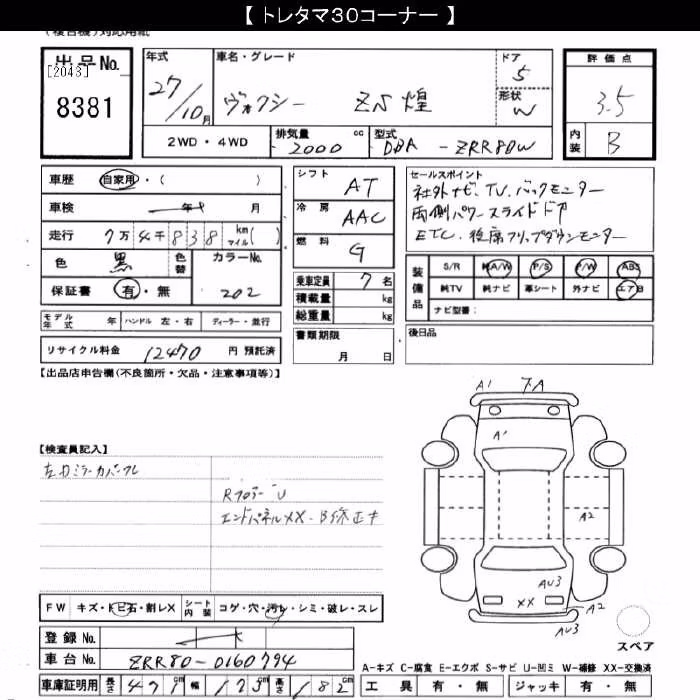 【 トレタマ３０コーナー 】
(複合機)対応用紙
出品No.
[2043]
8381
年式
27/10月
車名・グレード
ヴォクシー ZS 煌
ドア
5
形状
W
評価点
3.5
内装
B
2WD・4WD
排気量 2000 cc
型式 DBA - ZRR80W
車歴 自家用・( )
車検 年 月
走行 7万4千838 km マイル( )
色 黒
色替
カラーNo. 202
保証書 有・無
モデル年式 年
ハンドル 左・右
ディーラー・並行
リサイクル料金 12470 円 預託済
シフト AT
冷房 AAC
燃料 G
乗車定員 7 名
積載量 kg
総重量 kg
書類期限
月 日
セールスポイント
社外ナビ、TV、バックモニター
両側パワースライドドア
ETC、後席フリップダウンモニター
装備品
S/R 純A/W P/S P/W ABS
純TV 純ナビ 革シート 外ナビ エアB
ナビ型番:
後日品
【出品店申告欄(不良箇所・欠品・注意事項等)】
【検査員記入】
左ドミラーカバーワレ
RフロアーU
エンドパネルXX・B修正キ
A1 下A
A1
A2
AU3
XX
A2
AU3
スペア
FW キズ・トビ石・割レX
シート内装 コゲ・穴・汚レ・シミ・破レ・スレ
登録No.
車台No. ZRR80-0160794
車庫証明用 長さ 471cm 幅 173cm 高さ 182cm
A-キズ C-腐食 E-エクボ S-サビ U-凹ミ W-補修 XX-交換済
工具 有・無 ジャッキ 有・無